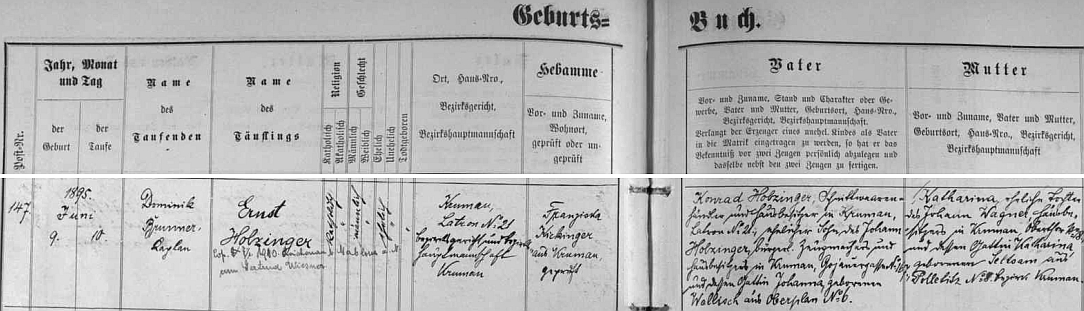 Geburts=
Buch.
Post-Nr.
Jahr, Monat
und Tag
der
Geburt
der
Taufe
Name
des
Taufenden
Name
des
Täuflings
Religion
Katholisch
Akatholisch
Geschlecht
Männlich
Weiblich
Ehelich
Unehelich
Todtgeboren
Ort, Haus-Nro.,
Bezirksgericht,
Bezirkshauptmannschaft
Hebamme
Vor- und Zuname,
Wohnort,
geprüft oder un-
geprüft
Vater
Vor- und Zuname, Stand und Charakter oder Ge-
werbe, Vater und Mutter, Geburtsort, Haus-Nro.,
Bezirksgericht, Bezirkshauptmannschaft.
Verlangt der Erzeuger eines unehel. Kindes als Vater
in die Matrik eingetragen zu werden, so hat er das
Bekenntniß vor zwei Zeugen persönlich abzulegen und
dasselbe nebst den zwei Zeugen zu fertigen.
Mutter
Vor- und Zuname, Vater und Mutter,
Geburtsort, Haus-Nro., Bezirksgericht,
Bezirkshauptmannschaft
147.
1895.
Juni
9. 10.
Dominik
Brunner,
Kaplan
Ernst
Holzinger
Krumau,
Latron N. 21
Bezirksgericht und Bezirks-
hauptmannschaft
Krumau
Franziska
aus Krumau,
geprüft
Konrad Holzinger, Schnittwaaren-
händler und Hausbesitzer in Krumau,
Latron N. 21, ehelicher Sohn des Johann
Holzinger, bürgerl. Zeugmacher und
Hausbesitzers in Krumau,
und dessen Gattin Johanna, geborenen
Wallisch aus Oberplan No 6.
Katharina, eheliche Tochter
des Johann Wagner, Hausbe-
sitzers in Krumau,
und dessen Gattin Katharina
geborenen
aus
Bezirk Krumau